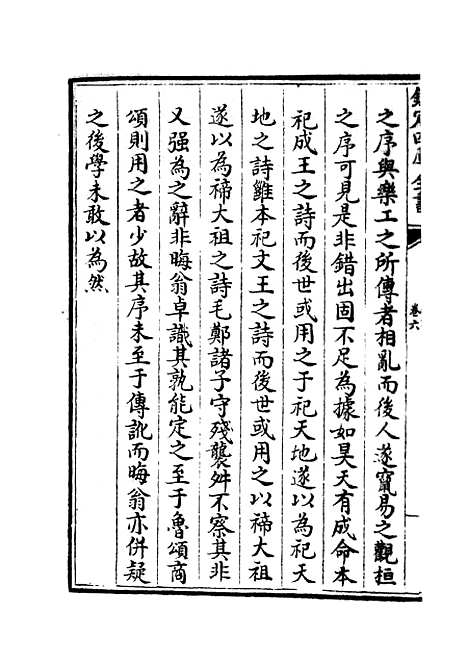 欽定四庫全書
卷六
之序與樂工之所傳者相亂而後人遂竄易之觀桓
之序可見是非錯出固不足為據如昊天有成命本
祀成王之詩而後世或用之于祀天地遂以為祀天
地之詩雝本祀文王之詩而後世或用之以禘大祖
遂以為禘大祖之詩毛鄭諸子守殘襲舛不察其非
又强為之辭非晦翁卓識其孰能定之至于魯頌商
頌則用之者少故其序未至于傳訛而晦翁亦併疑
之後學未敢以為然